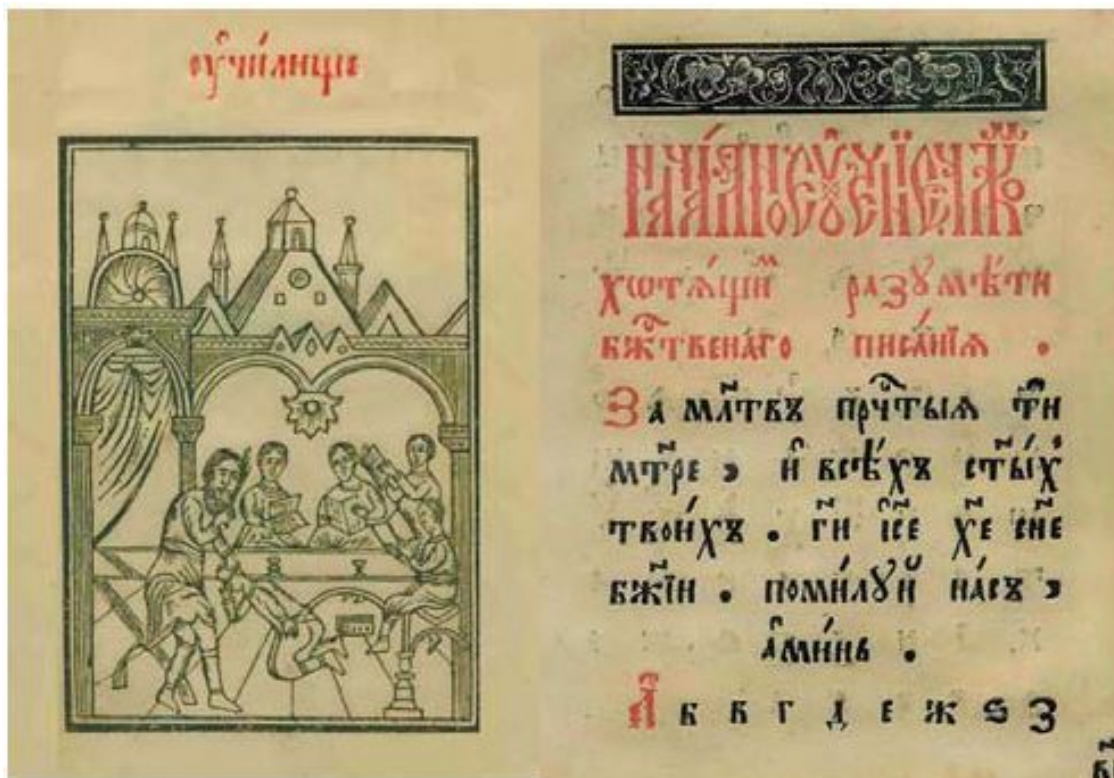 ᲂу҆чи́лище
НАЧА́ЛНОЕ ОУ҆ЧЕ́НЇЕ ЧЛ҃КОМЪ
хотѧ́щимъ разꙋмѣ́ти
бжⷭ҇твенаго писа́нїѧ .
За мл҃твъ прⷱ҇тыѧ тиⷡ҇
мт҃ре , и҆ всѣ́хъ ст҃ы́хъ
твои́хъ . гй҃ і҆с҃е хе҃ сн҃е
бж҃їи . поми́лꙋй на́съ ,
а҆ми́нь .
А б в г д е ж ѕ з